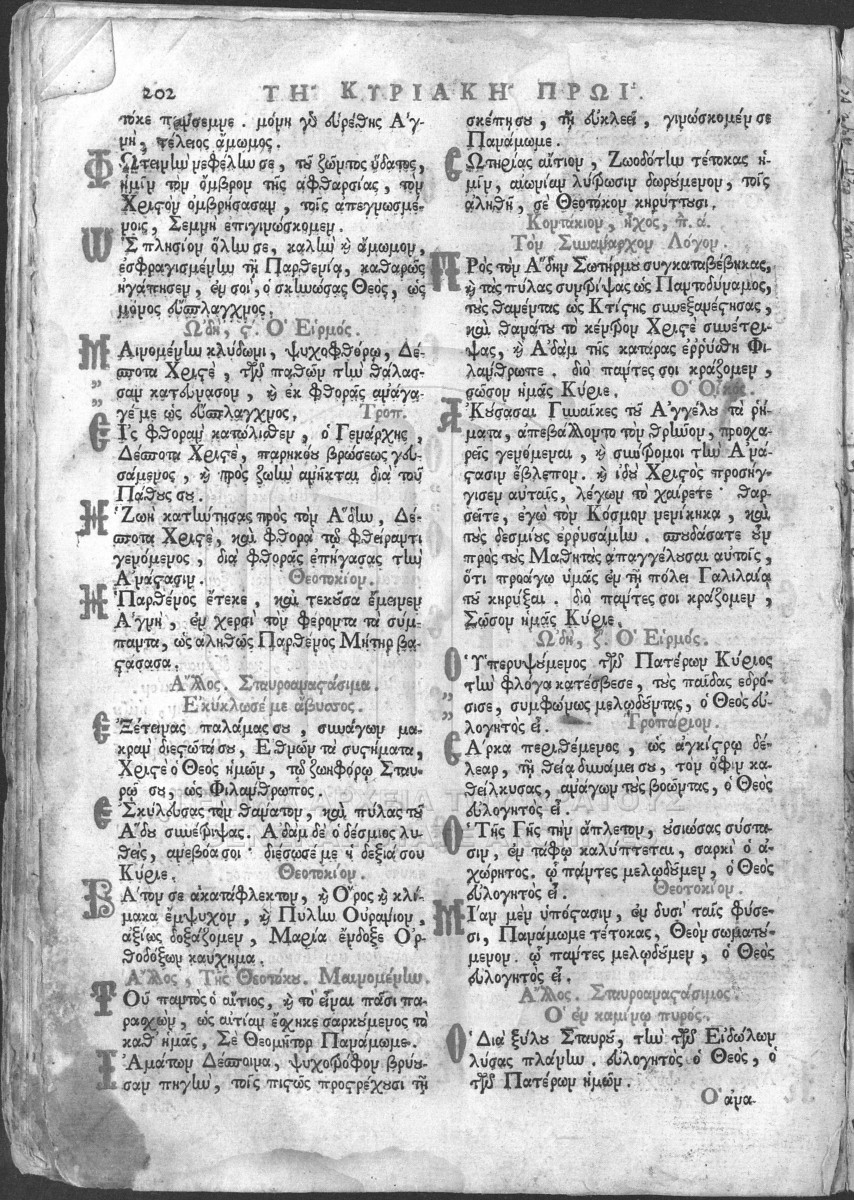 202 ΤΗ͂ ΚΥΡΙΑΚΗ͂ ΠΡΩΪ́.
τόκε πάνσεμνε. μόνη γὸ εὑρέθης Ἁγ-
νὴ, τέλειος ἄμωμος.
ΦΩτεινὴν νεφέλην σε, τοῦ ζῶντος ὕδατος,
ἡμῖν τὸν ὄμβρον τῆς ἀφθαρσίας, τὸν
Χριστὸν ὀμβρήσασαν, τοῖς ἀπεγνωσμέ-
νοις, Σεμνὴ ἐπιγινώσκομεν.
ὩΣ πλησίον ὅλην σε, καλὴν καὶ ἄμωμον,
ἐσφραγισμένην τῇ Παρθενίᾳ, καθαρῶς
ἠγάπησεν, ἐν σοὶ, ὁ σκηνώσας Θεὸς, ὡς
μόνος εὔσπλαγχνος.
ᾨδὴ, ϛ΄. Ὁ Εἱρμός.
ΜΑινομένην κλύδωνι, ψυχοφθόρῳ, Δέ-
σποτα Χριστὲ, τῶν παθῶν τὴν θάλασ-
σαν κατεύνασον, καὶ ἐκ φθορᾶς ἀνάγα-
γέ με ὡς εὔσπλαγχνος. Τροπ.
ΕἸς φθορὰν κατώλισθεν, ὁ Γενάρχης,
Δέσποτα Χριστὲ, παρηκόου βρώσεως γευ-
σάμενος, καὶ πρὸς ζωὴν ἀνῆκται διὰ τοῦ
Πάθους σου.
ἩΖωὴ κατήντησας πρὸς τὸν ᾍδην, Δέ-
σποτα Χριστὲ, καὶ φθορὰ τῷ φθείραντι
γενόμενος, διὰ φθορᾶς ἐπήγασας τὴν
Ἀνάστασιν. Θεοτοκίον.
ἩΠαρθένος ἔτεκε, καὶ τεκοῦσα ἔμεινεν
Ἁγνὴ, ἐν χερσὶ τὸν φέροντα τὰ σύμ-
παντα, ὡς ἀληθῶς Παρθένος Μήτηρ βα-
στάσασα.
Ἄλλος. Σταυροαναστάσιμα.
Ἐκύκλωσέ με ἄβυσσος.
ἘΞέτεινας παλάμας σου, συνάγων μα-
κρὰν διεστῶτά σου, Ἐθνῶν τὰ συστήματα,
Χριστὲ ὁ Θεὸς ἡμῶν, τῷ ζωηφόρῳ Σταυ-
ρῷ σου, ὡς Φιλάνθρωπος.
ἘΣκύλευσας τὸν θάνατον, καὶ πύλας τοῦ
ᾍδου συνέτριψας. Ἀδὰμ δὲ ὁ δέσμιος λυ-
θεὶς, ἀνεβόα σοι· διέσωσέ με ἡ δεξιά σου
Κύριε. Θεοτοκίον.
ΒΑτον σε ἀκατάφλεκτον, καὶ Ὄρος καὶ κλί-
μακα ἔμψυχον, καὶ Πύλην Οὐράνιον,
ἀξίως δοξάζομεν, Μαρία ἔνδοξε Ὀρ-
θοδόξων καύχημα.
Ἄλλος, Τῆς Θεοτόκου. Μαινομένην.
ΤΟῦ παντὸς ὁ αἴτιος, καὶ τὸ εἶναι πᾶσι πα-
ρασχὼν, ὡς αἰτίαν ἔσχηκε σαρκούμενος τὸ
καθ' ἡμᾶς, Σὲ Θεομῆτορ Πανάμωμε.
ἸΑμάτων Δέσποινα, ψυχοτρόφον βρύου-
σαν πηγὴν, τοῖς πιστῶς προστρέχουσι τῇ
σκέπῃ σου, τῇ εὐκλεεῖ, γινώσκομέν σε
Πανάμωμε.
ΣΩτηρίας αἴτιον, Ζωοδότην τέτοκας ἡ-
μῖν, αἰωνίαν λύτρωσιν δωρούμενον, τοῖς
ἀληθῆ, σὲ Θεοτόκον κηρύττουσι.
Κοντάκιον, ἦχος, π. ά.
Τὸν Συνάναρχον Λόγον.
ΠΡὸς τὸν ᾍδην Σωτήρ μου συγκαταβέβηκας,
καὶ τὰς πύλας συντρίψας ὡς Παντοδύναμος,
τοὺς θανέντας ὡς Κτίστης συνεξανέστησας,
καὶ θανάτου τὸ κέντρον Χριστὲ συνέτρι-
ψας, καὶ Ἀδὰμ τῆς κατάρας ἐῤῥύσθη Φι-
λάνθρωπε. διὸ πάντες σοι κράζομεν,
σῶσον ἡμᾶς Κύριε. Ὁ Οἶκος.
ἈΚούσασαι Γυναῖκες τοῦ Ἀγγέλου τὰ ῥή-
ματα, ἀπεβάλλοντο τὸν θρῆνον, προσχα-
ρεῖς γενόμεναι, καὶ σύντρομοι τὴν Ἀνά-
στασιν ἔβλεπον. καὶ ἰδοὺ Χριστὸς προσήγ-
γισεν αὐταῖς, λέγων τὸ χαίρετε· θαρ-
σεῖτε, ἐγὼ τὸν Κόσμον νενίκηκα, καὶ
τοὺς δεσμίους ἐῤῥυσάμην. σπουδάσατε οὖν
πρὸς τοὺς Μαθητὰς ἀπαγγέλουσαι αὐτοῖς,
ὅτι προάγω ὑμᾶς ἐν τῇ πόλει Γαλιλαίᾳ
τοῦ κηρύξαι. διὸ πάντες σοι κράζομεν,
Σῶσον ἡμᾶς Κύριε.
ᾨδὴ, ζ΄. Ὁ Εἱρμός.
ὉὙπερυψούμενος τῶν Πατέρων Κύριος
τὴν φλόγα κατέσβεσε, τοὺς παῖδας ἐδρό-
σισε, συμφώνως μελῳδοῦντας, ὁ Θεὸς εὐ-
λογητὸς εἶ. Τροπάριον.
ΣΑρκα περιθέμενος, ὡς ἀγκίστρῳ δέ-
λεαρ, τῇ θείᾳ δυνάμει σου, τὸν ὄφιν κα-
θείλκυσας, ἀνάγων τοὺς βοῶντας, ὁ Θεὸς
εὐλογητὸς εἶ.
ὉΤῆς Γῆς τὴν ἄπλετον, οὐσιώσας σύστα-
σιν, ἐν τάφῳ καλύπτεται, σαρκὶ ὁ ἀ-
χώρητος. ᾧ πάντες μελῳδοῦμεν, ὁ Θεὸς
εὐλογητὸς εἶ. Θεοτοκίον.
ΜΙαν μὲν ὑπόστασιν, ἐν δυσὶ ταῖς φύσε-
σι, Πανάμωμε τέτοκας, Θεὸν σωματού-
μενον. ᾧ πάντες μελῳδοῦμεν, ὁ Θεὸς
εὐλογητὸς εἶ.
Ἄλλος. Σταυροαναστάσιμος.
Ὁ ἐν καμίνῳ πυρός.
ὉΔιὰ ξύλου Σταυροῦ, τὴν τῶν Εἰδώλων
λύσας πλάνην. εὐλογητὸς ὁ Θεὸς, ὁ
τῶν Πατέρων ἡμῶν.
Ὁ ἀνα-